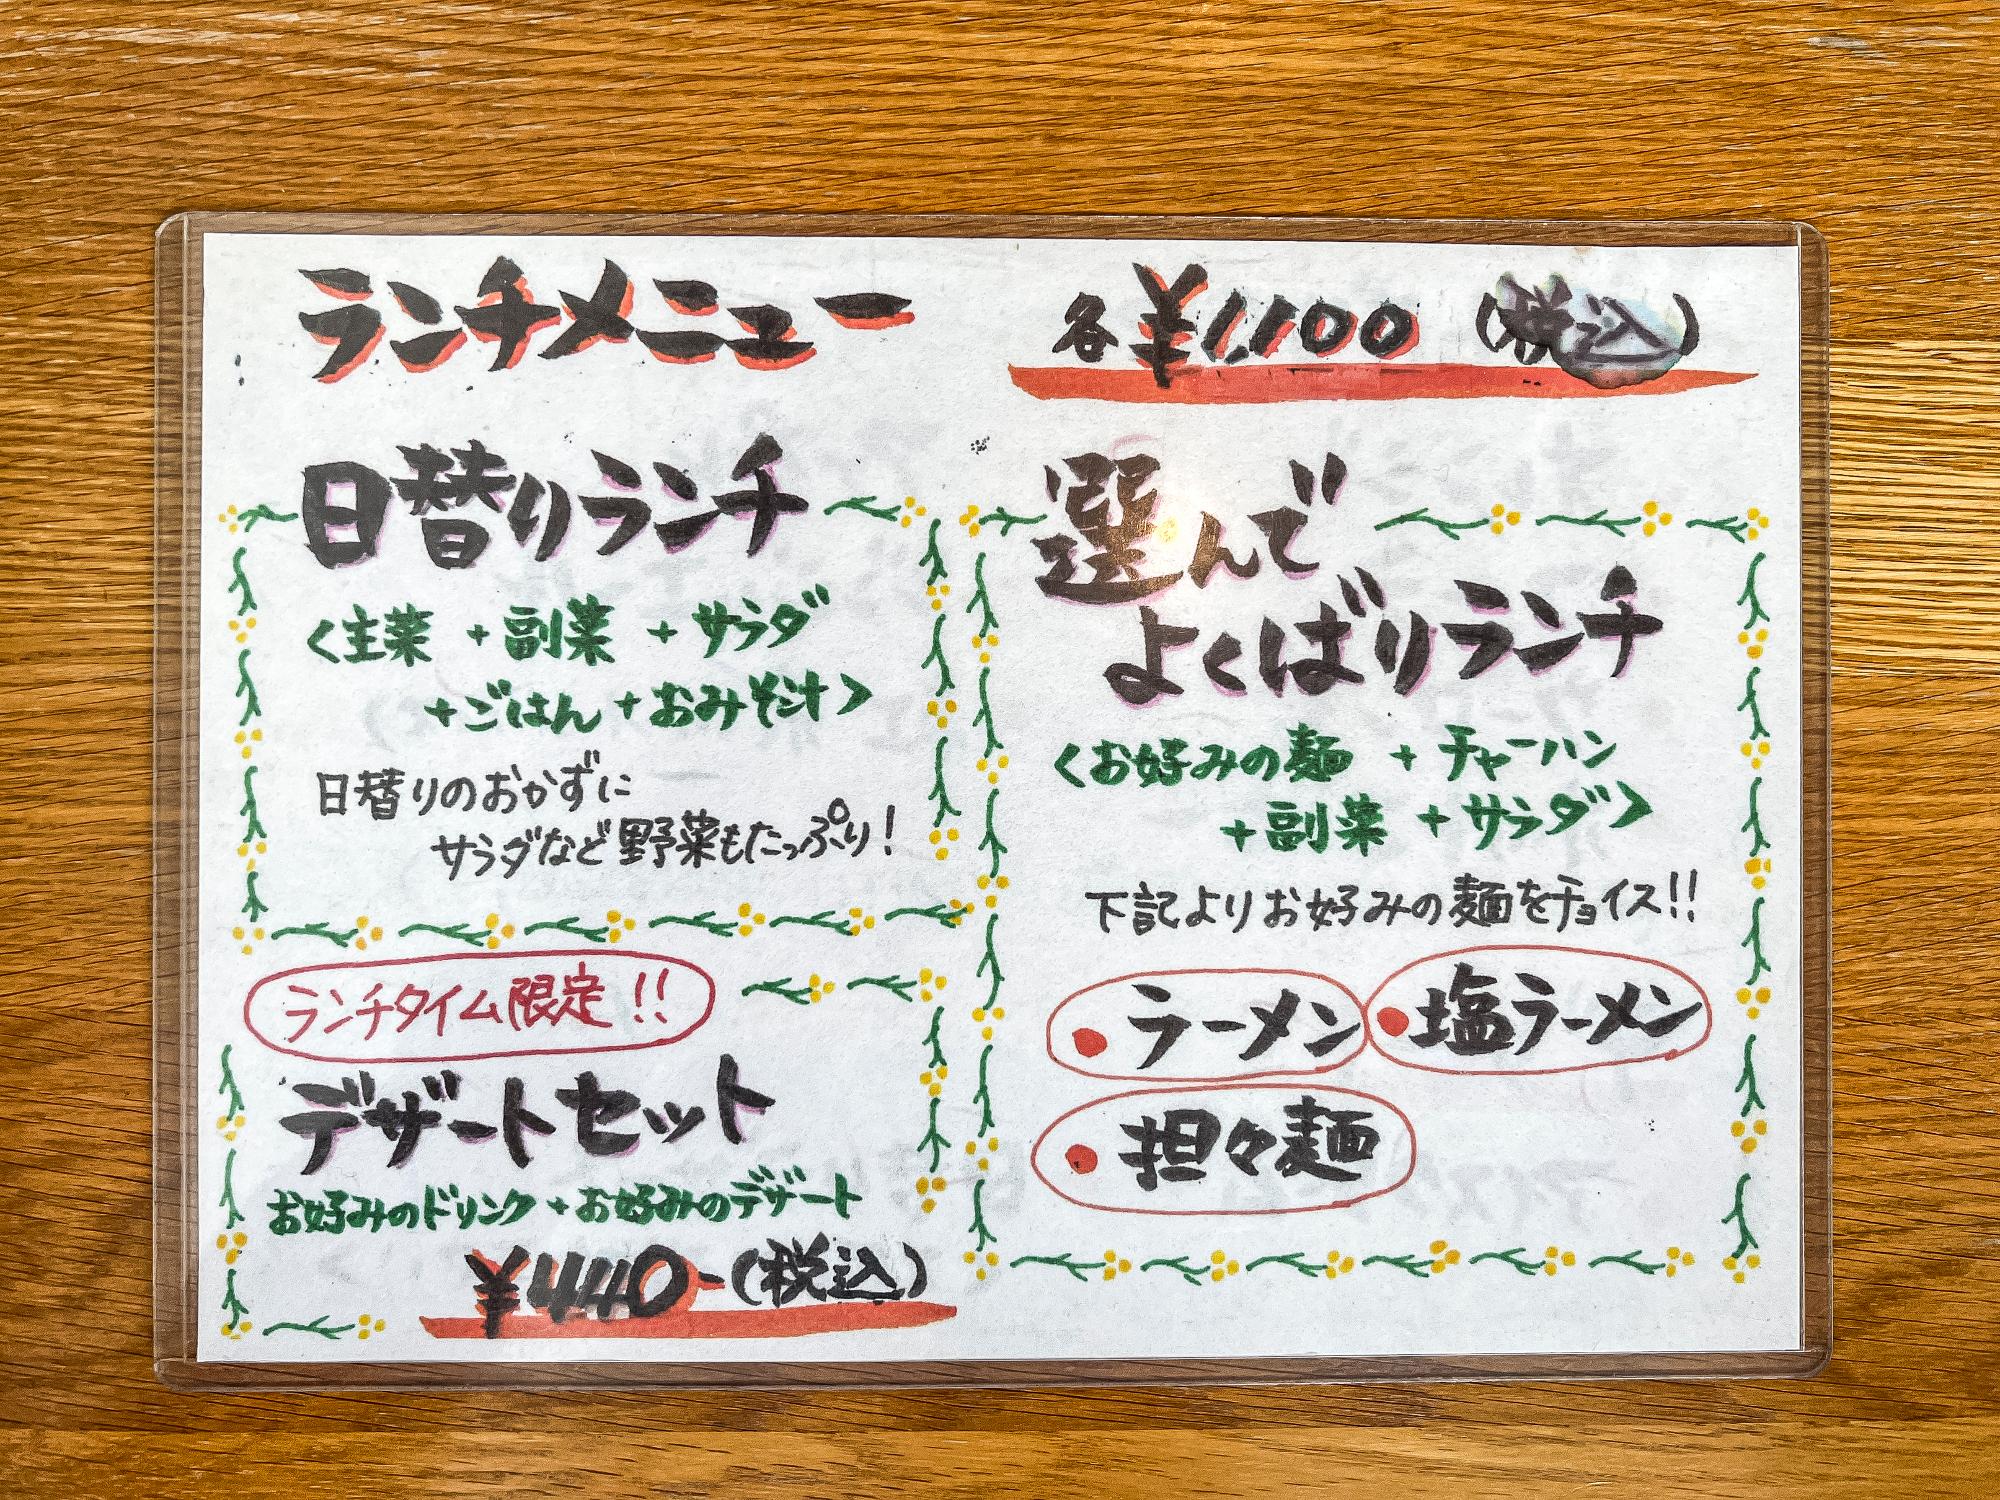 ランチメニュー
各¥1,100 (税込)
日替りランチ
<主菜 + 副菜 + サラダ
+ごはん + おみそ汁>
日替りのおかずに
サラダなど野菜もたっぷり!
ランチタイム限定!!
デザートセット
お好みのドリンク + お好みのデザート
¥440-(税込)
選んで
よくばりランチ
<お好みの麺 + チャーハン
+ 副菜 + サラダ>
下記よりお好みの麺をチョイス!!
●ラーメン ●塩ラーメン
●担々麺